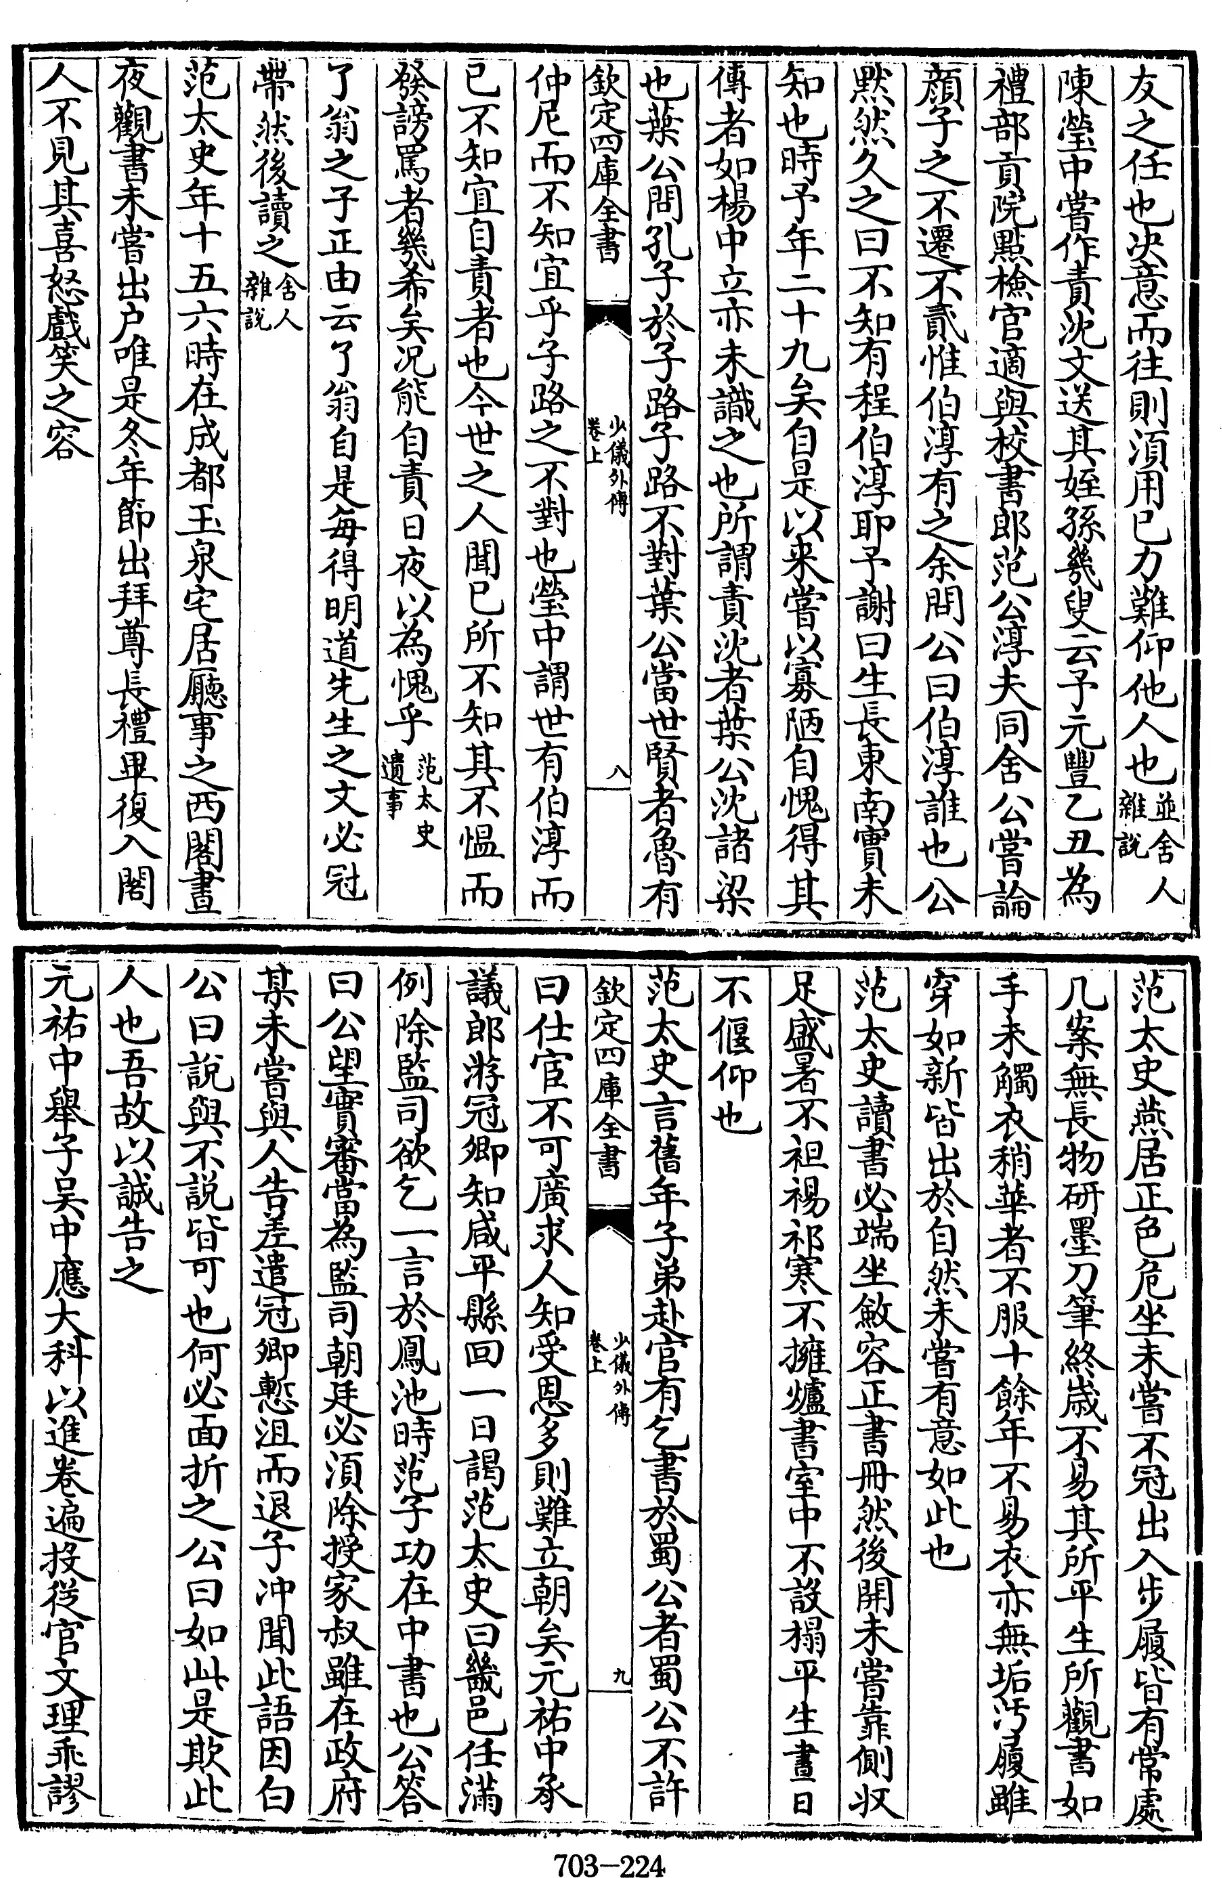 友之任也決意而往則須用己力難仰他人也並舍人雜說
陳瑩中嘗作責沈文送其姪孫幾叟云予元豐乙丑為
禮部貢院點檢官適與校書郎范公淳夫同舍公嘗論
顔子之不遷不貳惟伯淳有之余問公曰伯淳誰也公
黙然久之曰不知有程伯淳耶予謝曰生長東南實未
知也時予年二十九矣自是以來嘗以寡陋自愧得其
傳者如楊中立亦未識之也所謂責沈者葉公沈諸梁
也葉公問孔子於子路子路不對葉公當世賢者魯有
欽定四庫全書
少儀外傳
卷上
八
仲尼而不知宜乎子路之不對也瑩中謂世有伯淳而
己不知宜自責者也今世之人聞己所不知其不慍而
發謗罵者幾希矣况能自責日夜以為愧乎范太史遺事
了翁之子正由云了翁自是每得明道先生之文必冠
帶然後讀之舍人雜說
范太史年十五六時在成都玉泉宅居廳事之西閣晝
夜觀書未嘗出户唯是冬年節出拜尊長禮畢復入閣
人不見其喜怒戲笑之容
范太史燕居正色危坐未嘗不冠出入步履皆有常處
几案無長物研墨刀筆終歲不易其所平生所觀書如
手未觸衣稍華者不服十餘年不易衣亦無垢汚履雖
穿如新皆出於自然未嘗有意如此也
范太史讀書必端坐斂容正書冊然後開未嘗靠側收
足盛暑不袒裼祁寒不擁爐書室中不設榻平生晝日
不偃仰也
范太史言舊年子弟赴官有乞書於蜀公者蜀公不許
欽定四庫全書
少儀外傳
卷上
九
曰仕宦不可廣求人知受恩多則難立朝矣元祐中承
議郎游冠卿知咸平縣回一日謁范太史曰畿邑任滿
例除監司欲乞一言於鳳池時范子功在中書也公答
曰公望實審當為監司朝廷必須除授家叔雖在政府
某未嘗與人告差遣冠卿慙沮而退子冲聞此語因白
公曰說與不說皆可也何必面折之公曰如此是欺此
人也吾故以誠告之
元祐中舉子吳中應大科以進卷遍投從官文理乖謬
703-224